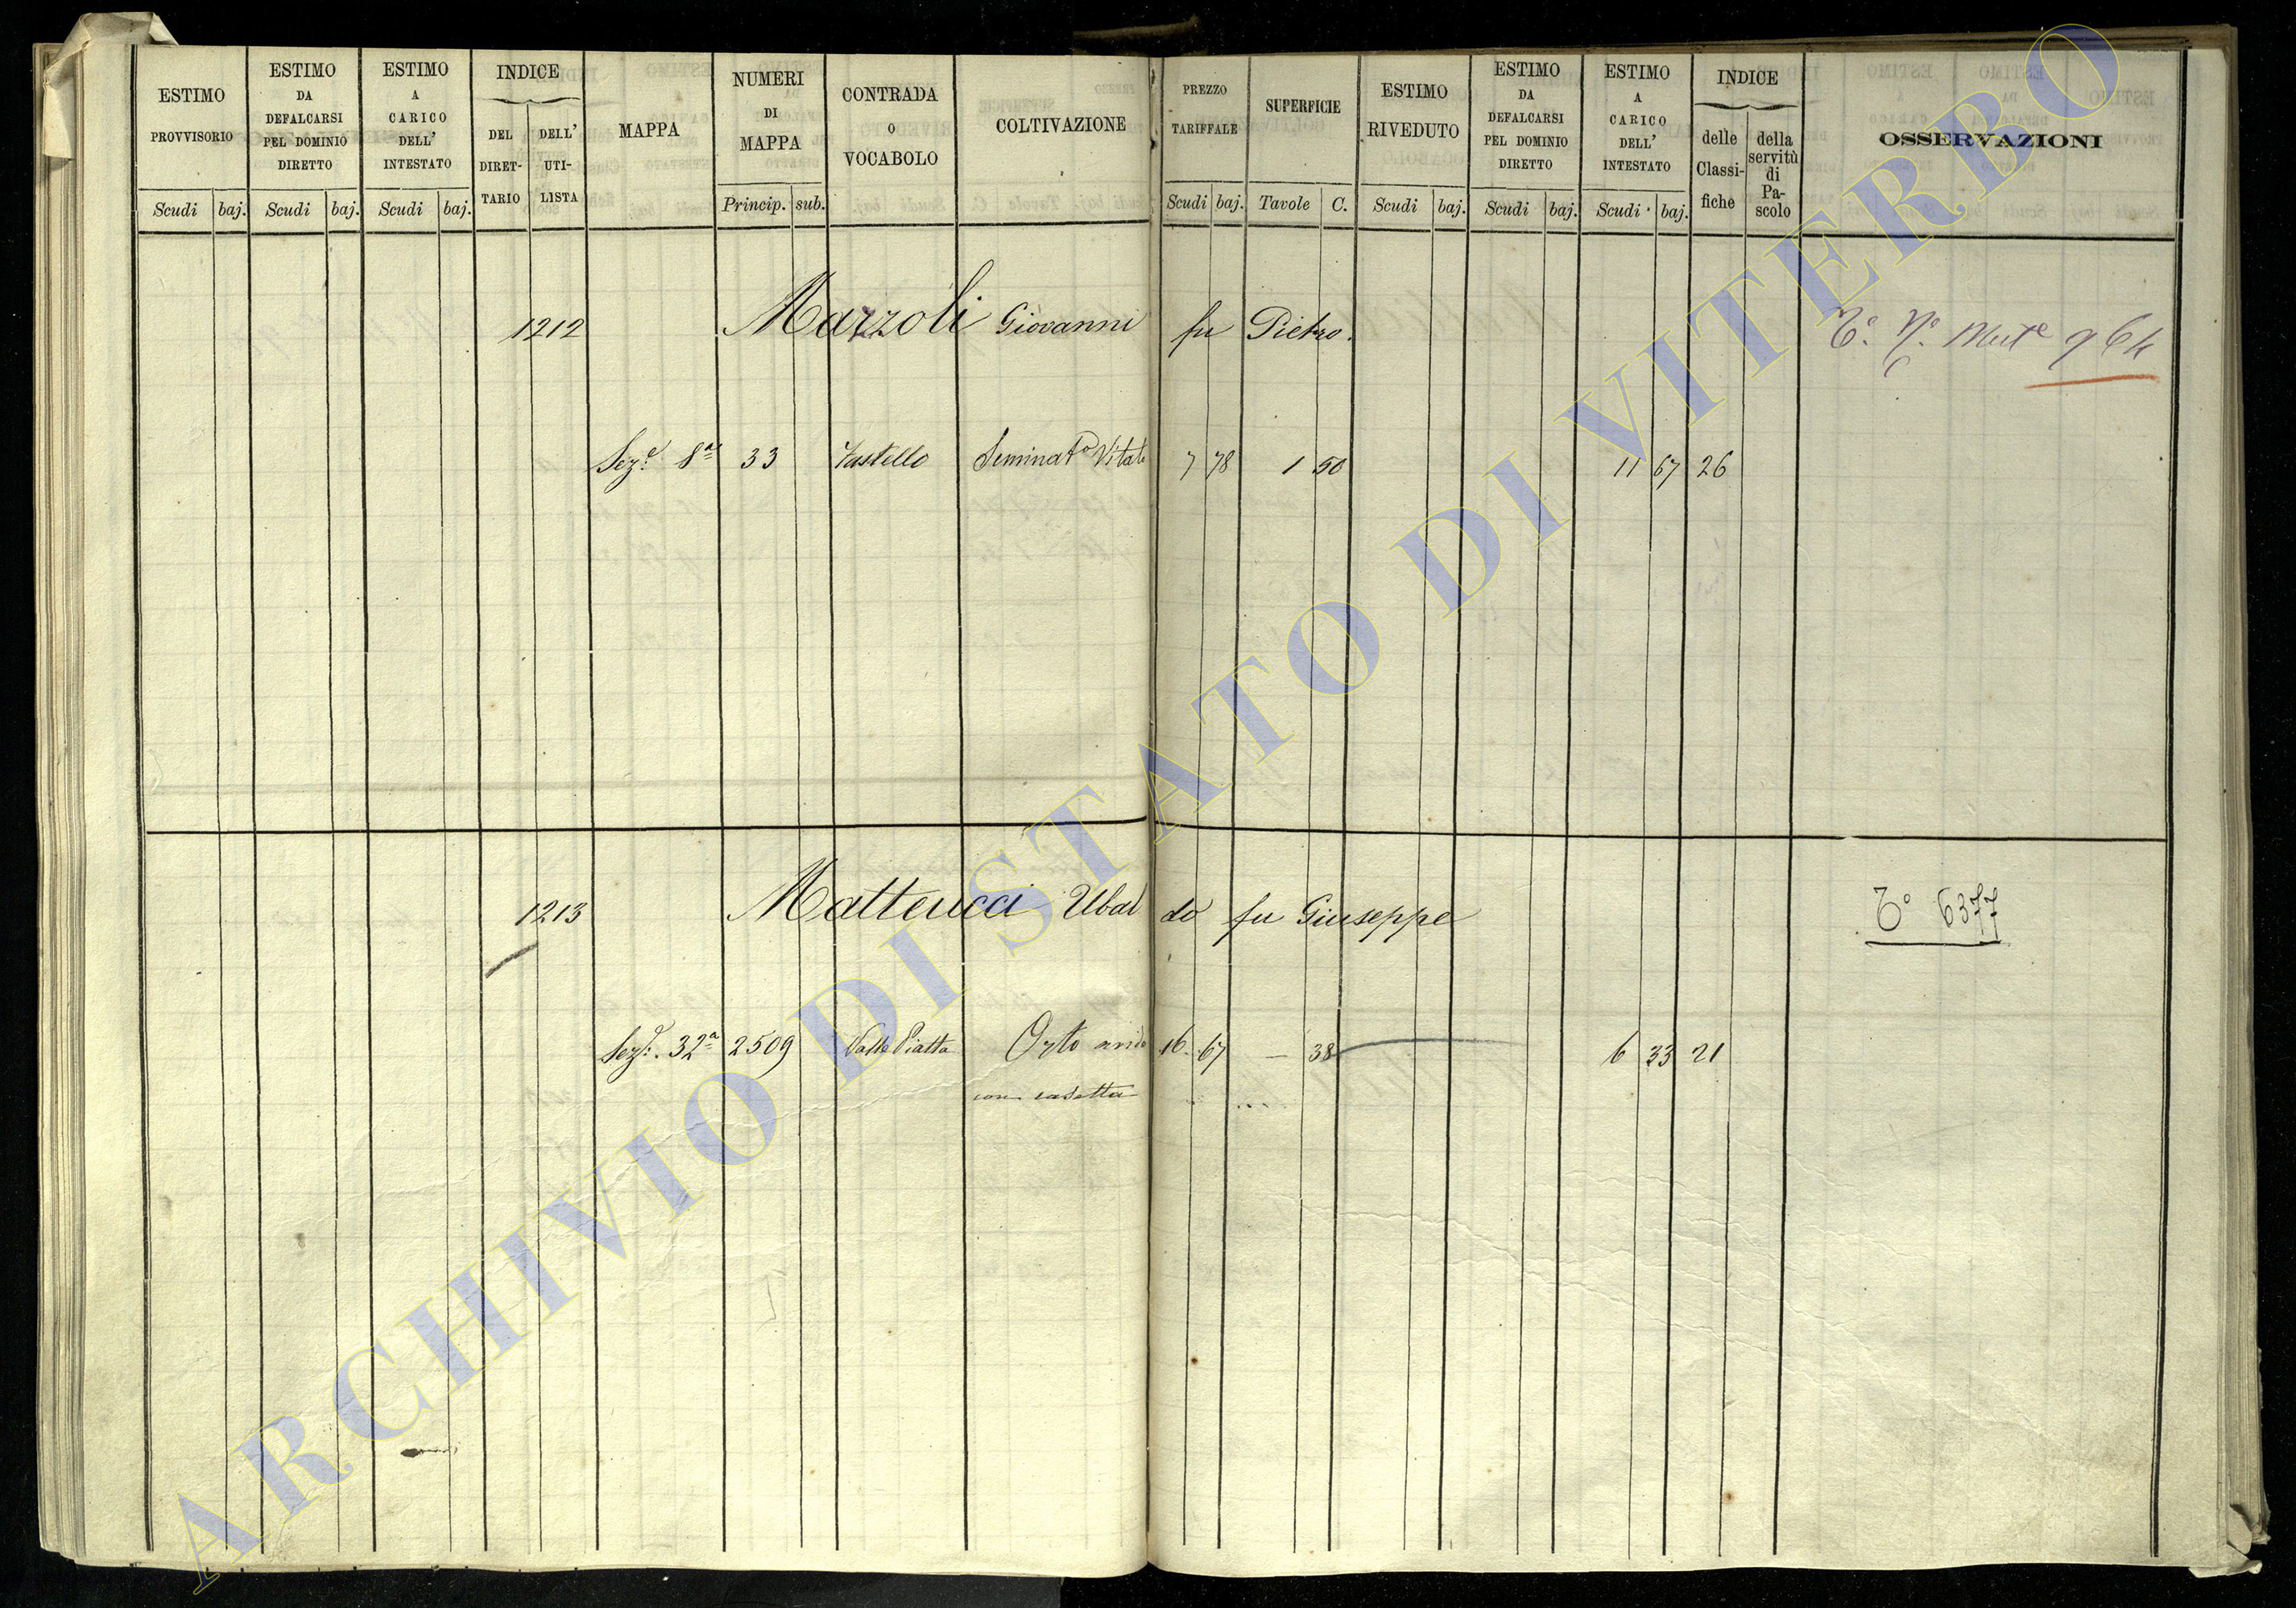 ESTIMO PROVVISORIO
Scudi baj.
ESTIMO DA DEFALCARSI PEL DOMINIO DIRETTO
Scudi baj.
ESTIMO A CARICO DELL' INTESTATO
Scudi baj.
INDICE
DEL DIRET-TARIO
DELL' UTI-LISTA
MAPPA
NUMERI DI MAPPA
Princip. sub.
CONTRADA O VOCABOLO
COLTIVAZIONE
PREZZO TARIFFALE
Scudi baj.
SUPERFICIE
Tavole C.
ESTIMO RIVEDUTO
Scudi baj.
ESTIMO DA DEFALCARSI PEL DOMINIO DIRETTO
Scudi baj.
ESTIMO A CARICO DELL' INTESTATO
Scudi baj.
INDICE
delle Classi-fiche
della servitù di Pa-scolo
OSSERVAZIONI
1212 Marzoli Giovanni fu Pietro. T.° N.° Mut.e 964
Sez.e 8a 33 Castello Seminat.o Vitato 7 78 1 50 11 67 26
1213 Matteucci Ubaldo fu Giuseppe T.° 6377
Sez.e 32a 2509 Valle Piatta Orto arido 16 67 — 38 6 33 21
con casetta
ARCHIVIO DI STATO DI VITERBO